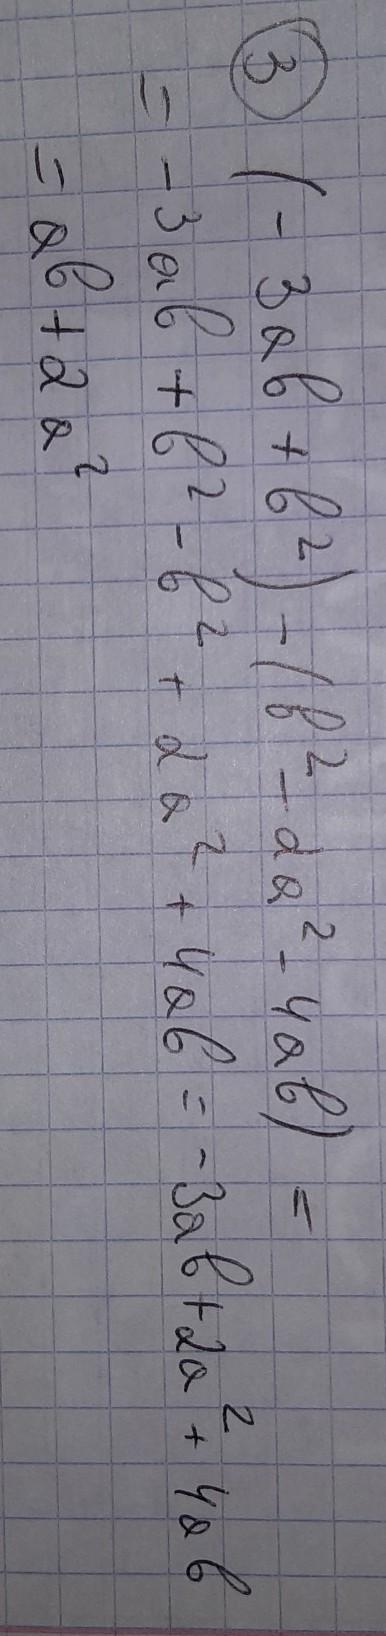 ③ (-3ab + b²) - (b² - 2a² - 4ab) =
= -3ab + b² - b² + 2a² + 4ab = -3ab + 2a² + 4ab
= ab + 2a²